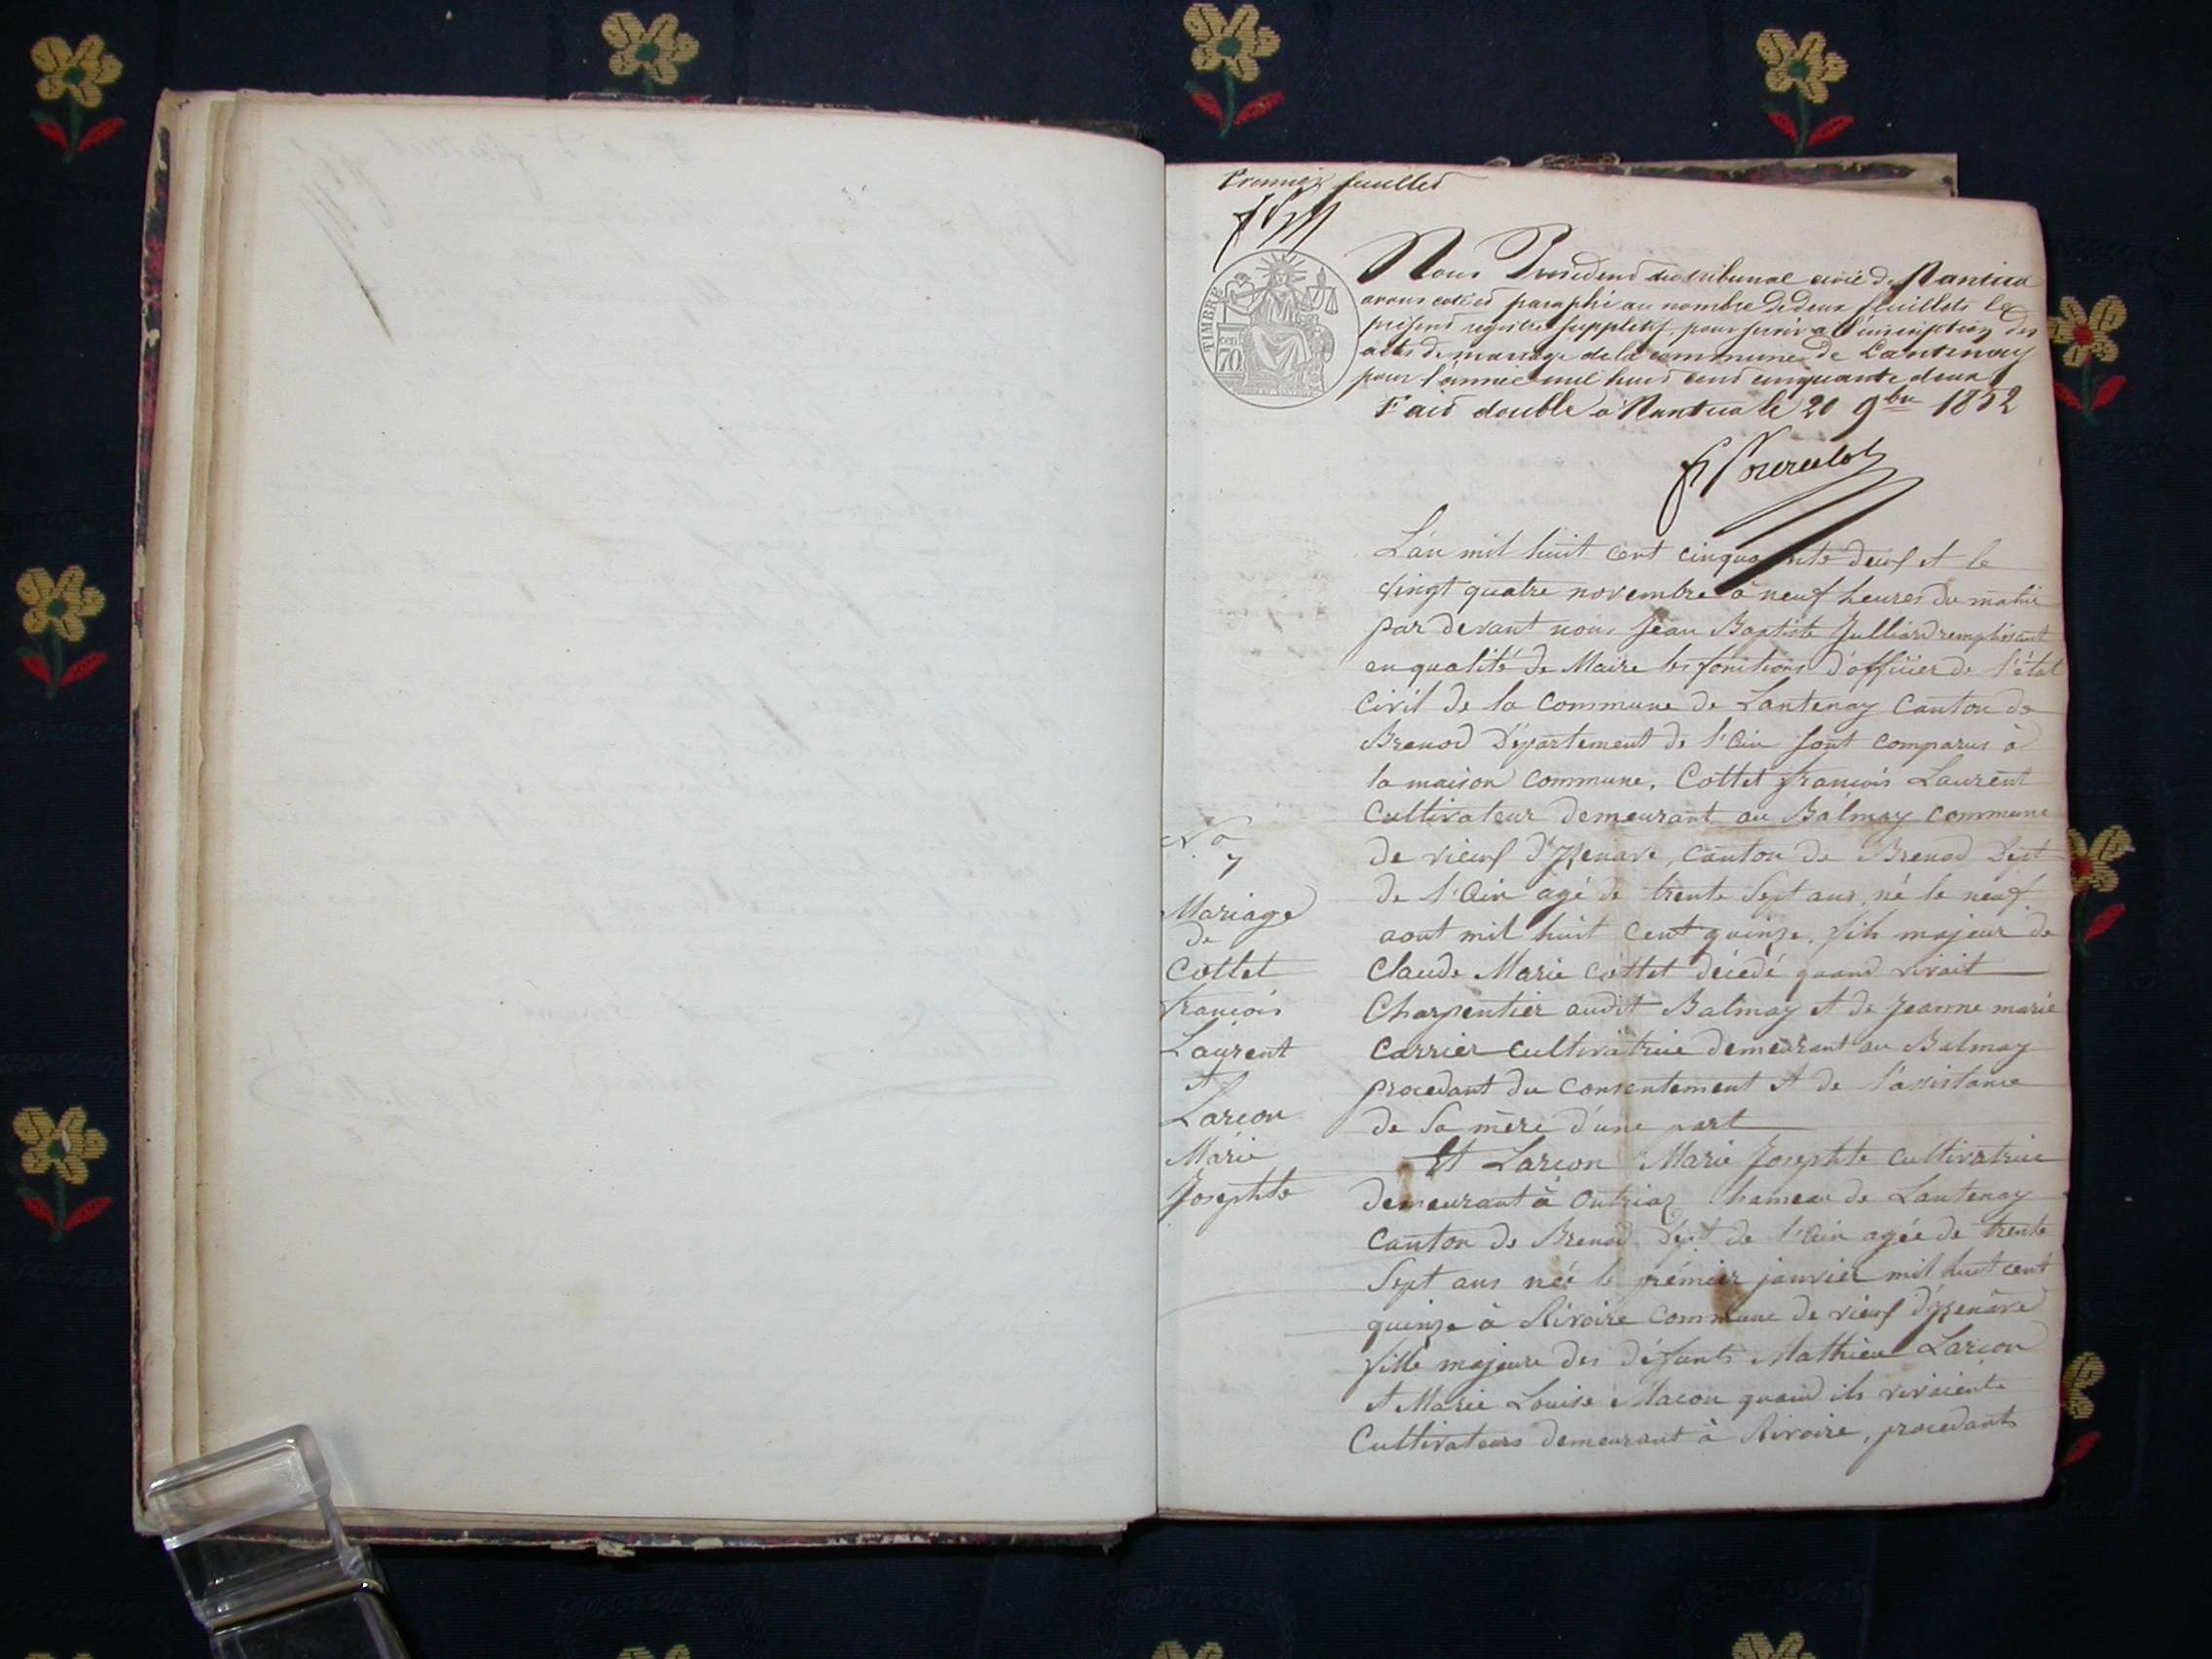 Premier feuillet
TIMBRE
70
Nous Président du tribunal civil de Nantua
avons coté et paraphé au nombre de deux feuillets le
présent registre supplétif, pour servir à l'inscription des
actes de mariage de la commune de Lantenay
pour l'année mil huit cent cinquante deux
Fait double à Nantua le 20 9bre 1852
L'an mil huit cent cinquante deux et le
vingt quatre novembre à neuf heures du matin
par devant nous Jean Baptiste Julliard remplissant
en qualité de Maire les fonctions d'officier de l'état
civil de la commune de Lantenay canton de
Brenod Département de l'Ain sont comparus à
la maison commune, Cottet françois Laurent
Cultivateur demeurant au Balmay commune
de vieux d'Izenave, canton de Brenod Dept
de l'Ain agé de trente sept ans, né le neuf
aout mil huit cent quinze, fils majeur de
Claude Marie Cottet décédé quand vivait
Charpentier audit Balmay et de Jeanne marie
Carrier cultivatrice demeurant au Balmay
procedant du consentement et de l'assistance
de sa mère d'une part
Et Larcon Marie Josephte cultivatrice
demeurant à Outriaz hameau de Lantenay
canton de Brenod Dept de l'Ain agée de trente
Sept ans née le prémier janvier mil huit cent
quinze à Rivoire commune de vieux d'Izenave
fille majeure des défunts Mathieu Larcon
et Marie Louise Macon quand ils vivaient
Cultivateurs demeurant à Rivoire, procedants
No
7
Mariage
de
Cottet
françois
Laurent
et
Larcon
Marie
Josephte